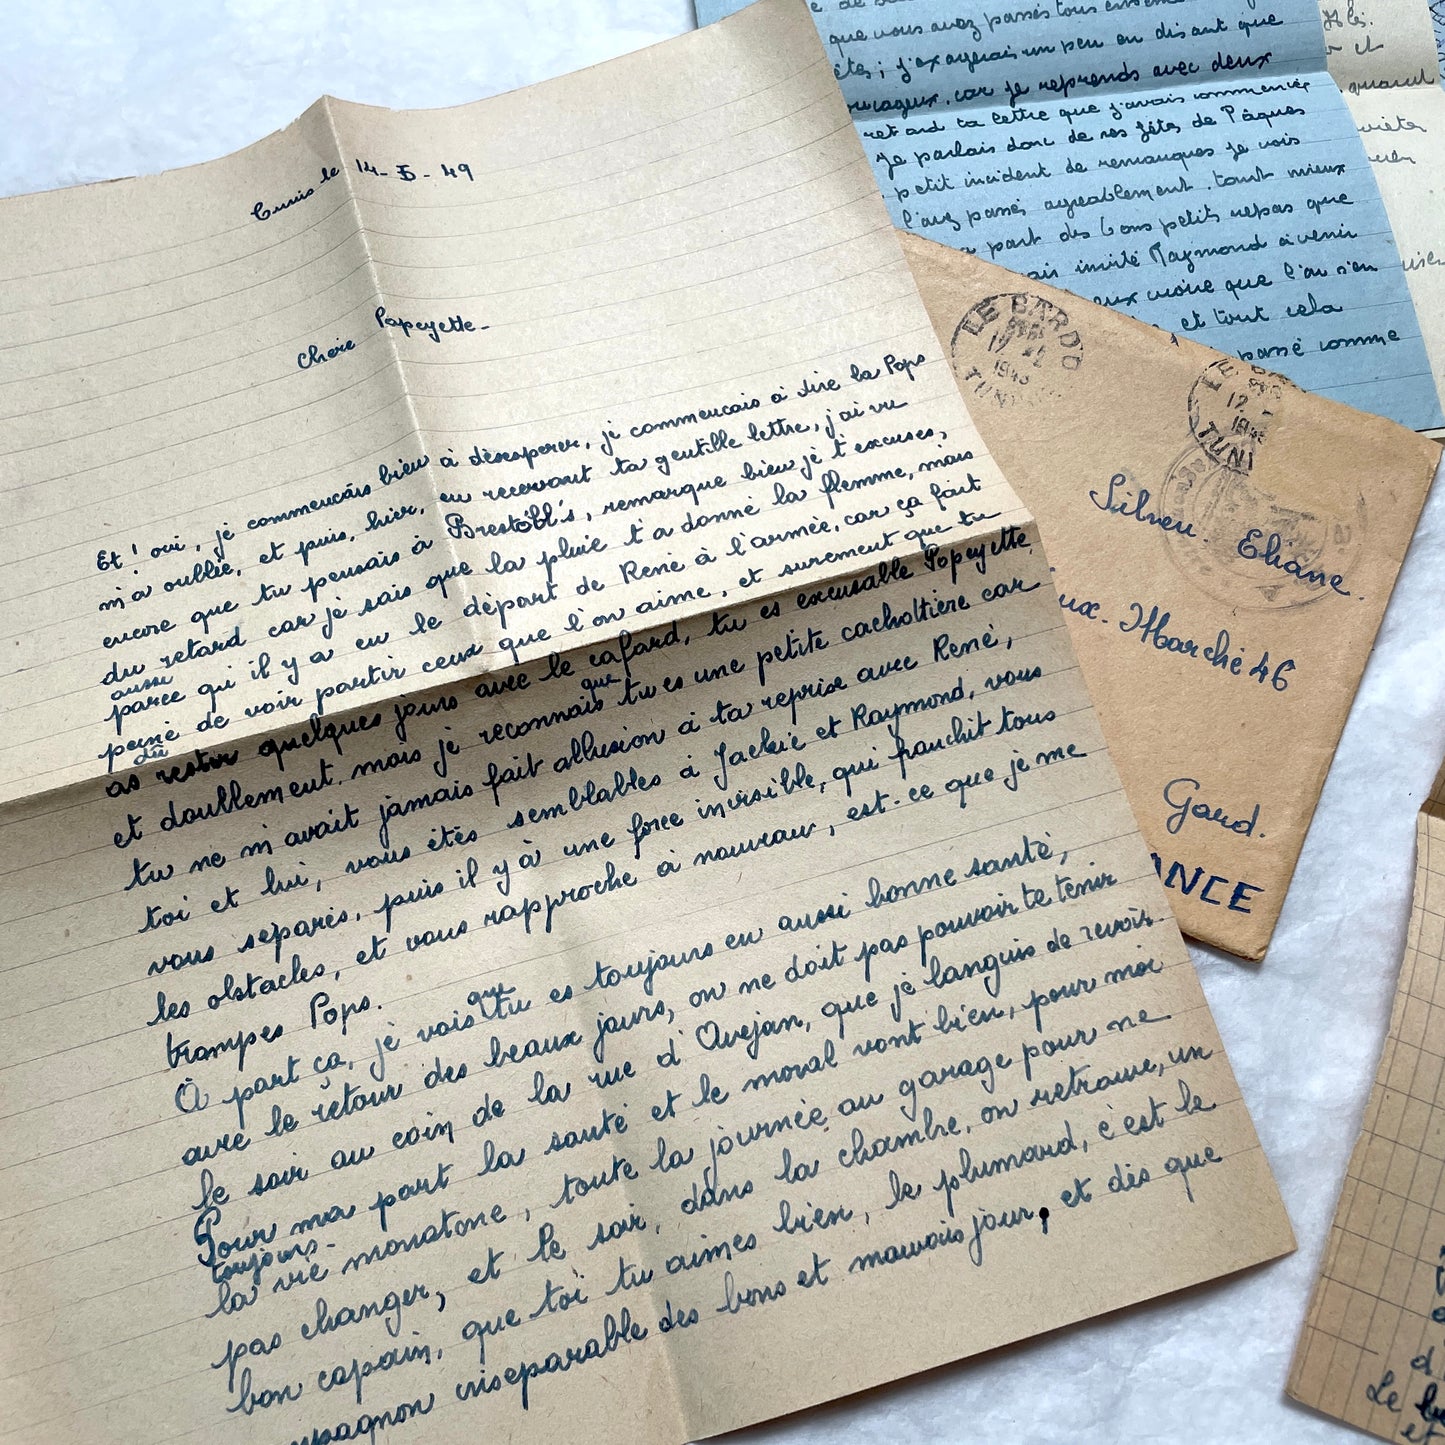 Tunis le 14-5-49
Chère Popeyette-
Et! oui, je commencais bien à désesperer, je commencais à dire la Pops
m'a oubliée, et puis, hier, en recevant ta gentille lettre, j'ai vu
encore que tu pensais à Brestobl's, remarque bien je t'excuses,
du retard car je sais que la pluie t'a donné la flemme, mais
aussi
parce qu'il y a eu le départ de René à l'armée, car ça fait
peine de voir partir ceux que l'on aime, et surement que tu
dû
as rester quelques jours avec le cafard, tu es excusable Popeyette,
et doublement. mais je reconnais que tu es une petite cachottière car
tu ne m'avait jamais fait allusion à ta reprise avec René,
toi et lui, vous êtes semblables à Jackie et Raymond, vous
vous séparés, puis il y à une force invisible, qui franchit tous
les obstacles, et vous rapproche à nouveau, est-ce que je me
trompes Pops.
À part ça, je vois que tu es toujours en aussi bonne santé,
avec le retour des beaux jours, on ne doit pas pouvoir te tenir
le soir au coin de la rue d'Avejan, que je languis de revoir.
Pour ma part la santé et le moral vont bien, pour moi
toujours-
la vie monotone, toute la journée au garage pour ne
pas changer, et le soir, dans la chambre, on retrouve, un
bon copain, que toi tu aimes bien, le plumard, c'est le
compagnon inséparable des bons et mauvais jour, et dès que
que vous avez passés tous
êtes; j'exagerais un peu en disant que
courageux. car je reprends avec deux
retard ta lettre que j'avais commencée
Je parlais donc de vos fêtes de Pâques
petit incident de remarques je vois
l'avez passés agreablement. tant mieux
à part des bons petits repas que
invité Raymond à venir
croire que l'au s'en
et tout cela
passé comme
quand
LE BARDO
17
1949
TUNISIE
LE BARDO
17
1949
TUNI
Silven. Eliane.
ux. Marché 46
Gard.
ANCE
d
Le
et